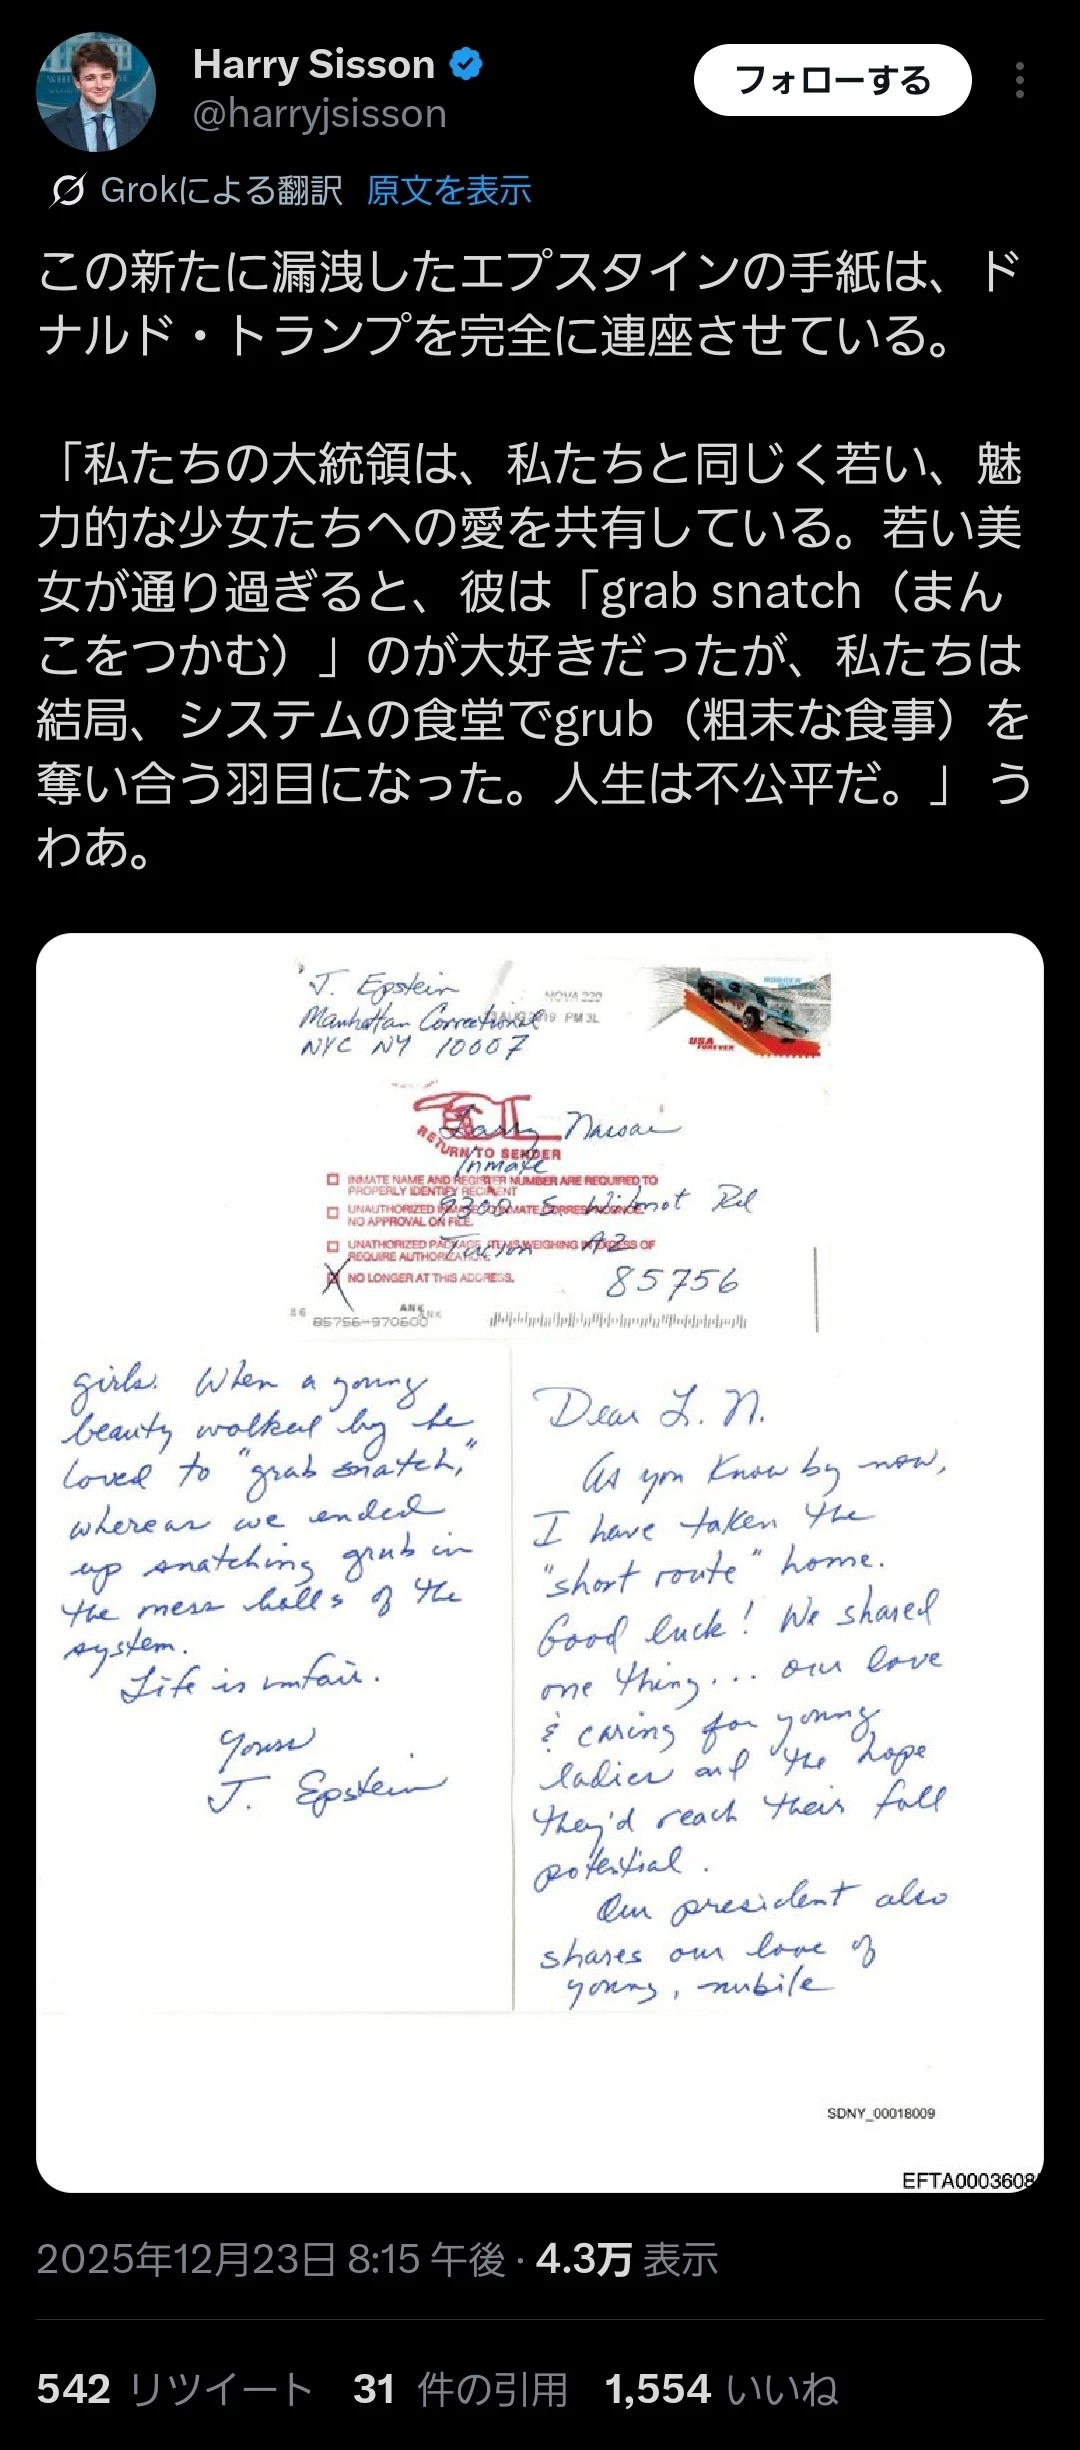 Harry Sisson
フォローする
@harryjsisson
Grokによる翻訳 原文を表示
この新たに漏洩したエプスタインの手紙は、ド
ナルド・トランプを完全に連座させている。
「私たちの大統領は、私たちと同じく若い、魅
力的な少女たちへの愛を共有している。若い美
女が通り過ぎると、彼は「grab snatch（まん
こをつかむ）」のが大好きだったが、私たちは
結局、システムの食堂でgrub（粗末な食事）を
奪い合う羽目になった。人生は不公平だ。」 う
わあ。
J. Epstein
Manhattan Correctional
NYC NY 10007
NOVA 220
13 AUG 2019 PM 3L
USA
FOREVER
Larry Nassar
RETURN TO SENDER
Inmate
INMATE NAME AND REGISTER NUMBER ARE REQUIRED TO
PROPERLY IDENTIFY RECIPIENT
9300 S. Wilmot Rd
UNAUTHORIZED INMATE TO INMATE CORRESPONDENCE.
NO APPROVAL ON FILE.
Tucson AZ
UNATHORIZED PACKAGE, ITEMS WEIGHING IN EXCESS OF
REQUIRE AUTHORIZATION.
NO LONGER AT THIS ADDRESS.
85756
ANK
85756-970600
girls. When a young
beauty walked by he
loved to "grab snatch,"
whereas we ended
up snatching grub in
the mess halls of the
system.
Life is unfair.
Yours
J. Epstein
Dear L. N.
As you know by now,
I have taken the
"short route" home.
Good luck! We shared
one thing... our love
& caring for young
ladies and the hope
they'd reach their full
potential.
Our president also
shares our love of
young, nubile
SDNY_00018009
EFTA0003608
2025年12月23日 8:15 午後 · 4.3万 表示
542 リツイート 31 件の引用 1,554 いいね